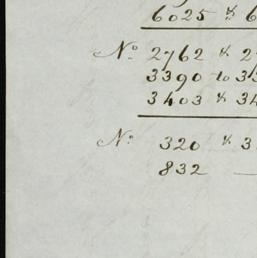 6025 & 6
No. 2762 & 27
3390 to 33
3403 & 34
No. 320 & 3
832 —